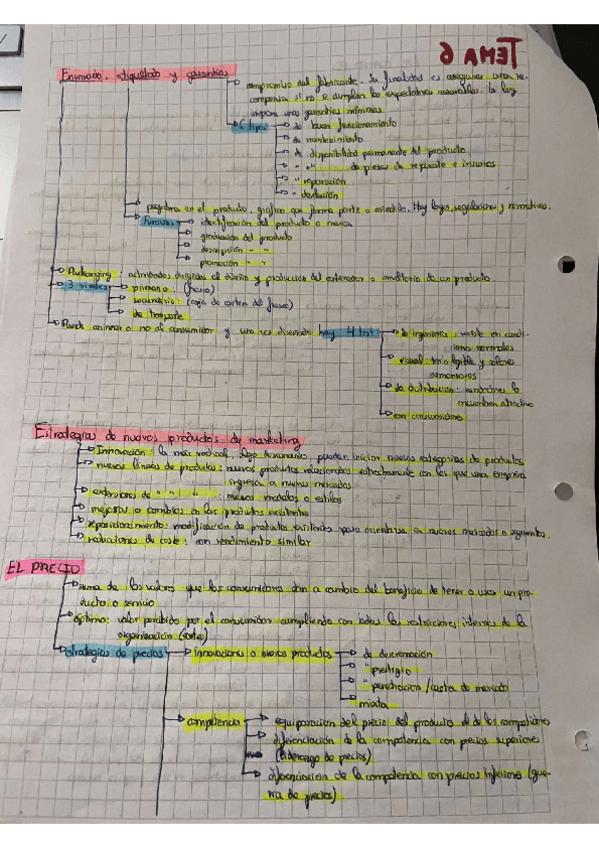 TEMA 6
Envasado, etiquetado y garantías
compromiso del fabricante. Su finalidad es asegurar una re-
compensa si no se cumplen las expectativas razonables. La ley
impone unas garantías mínimas
6 tipos
de buen funcionamiento
de mantenimiento
de disponibilidad permanente del producto
" " de piezas de repuesto e insumos
" reparación
" devolución
en el producto, gráfico que forma parte o Hay leyes, regulaciones y normativas.
Funciones
identificación del producto o marca
graduación del producto
descripción " "
promoción " "
Packanging: actividades dirigidas al diseño y producción del contenedor o envoltorio de un producto
3 niveles
primario: (frasco)
secundario: (caja de cartón del frasco)
de transporte
Puede animar o no al consumidor y una vez diseñado hay 4 test
de ingeniería: resiste en condi-
ciones normales
visual: texto legible y colores
armoniosos
de distribución: vendedores lo
encuentran atractivo
con consumidores
Estrategias de nuevos productos de marketing
Innovación: la más radical, algo revolucionario, pueden iniciar nuevas categorías de productos
nuevas líneas de productos: nuevos productos relacionados estrechamente con los que una empresa
ingresa a nuevos mercados
extensiones de " " ": nuevos modelos o estilos
mejoras o cambios en los productos existentes
reposicionamiento: modificación de productos existentes para orientarse a nuevos mercados o segmentos.
reducciones de coste: con rendimiento similar
EL PRECIO
suma de los valores que los consumidores dan a cambio del beneficio de tener o usar un pro-
ducto o servicio
óptimo: valor percibido por el consumidor cumpliendo con todas las restricciones internas de la
organización (costes)
estrategias de precios
innovaciones o nuevos productos
de descremación
" prestigio
" penetración / cuota de mercado
mixta
competencia
equiparación del precio del producto al de los competidores
diferenciación de la competencia con precios superiores
(liderazgo de precios)
diferenciación de la competencia con precios inferiores (gue-
rra de precios)